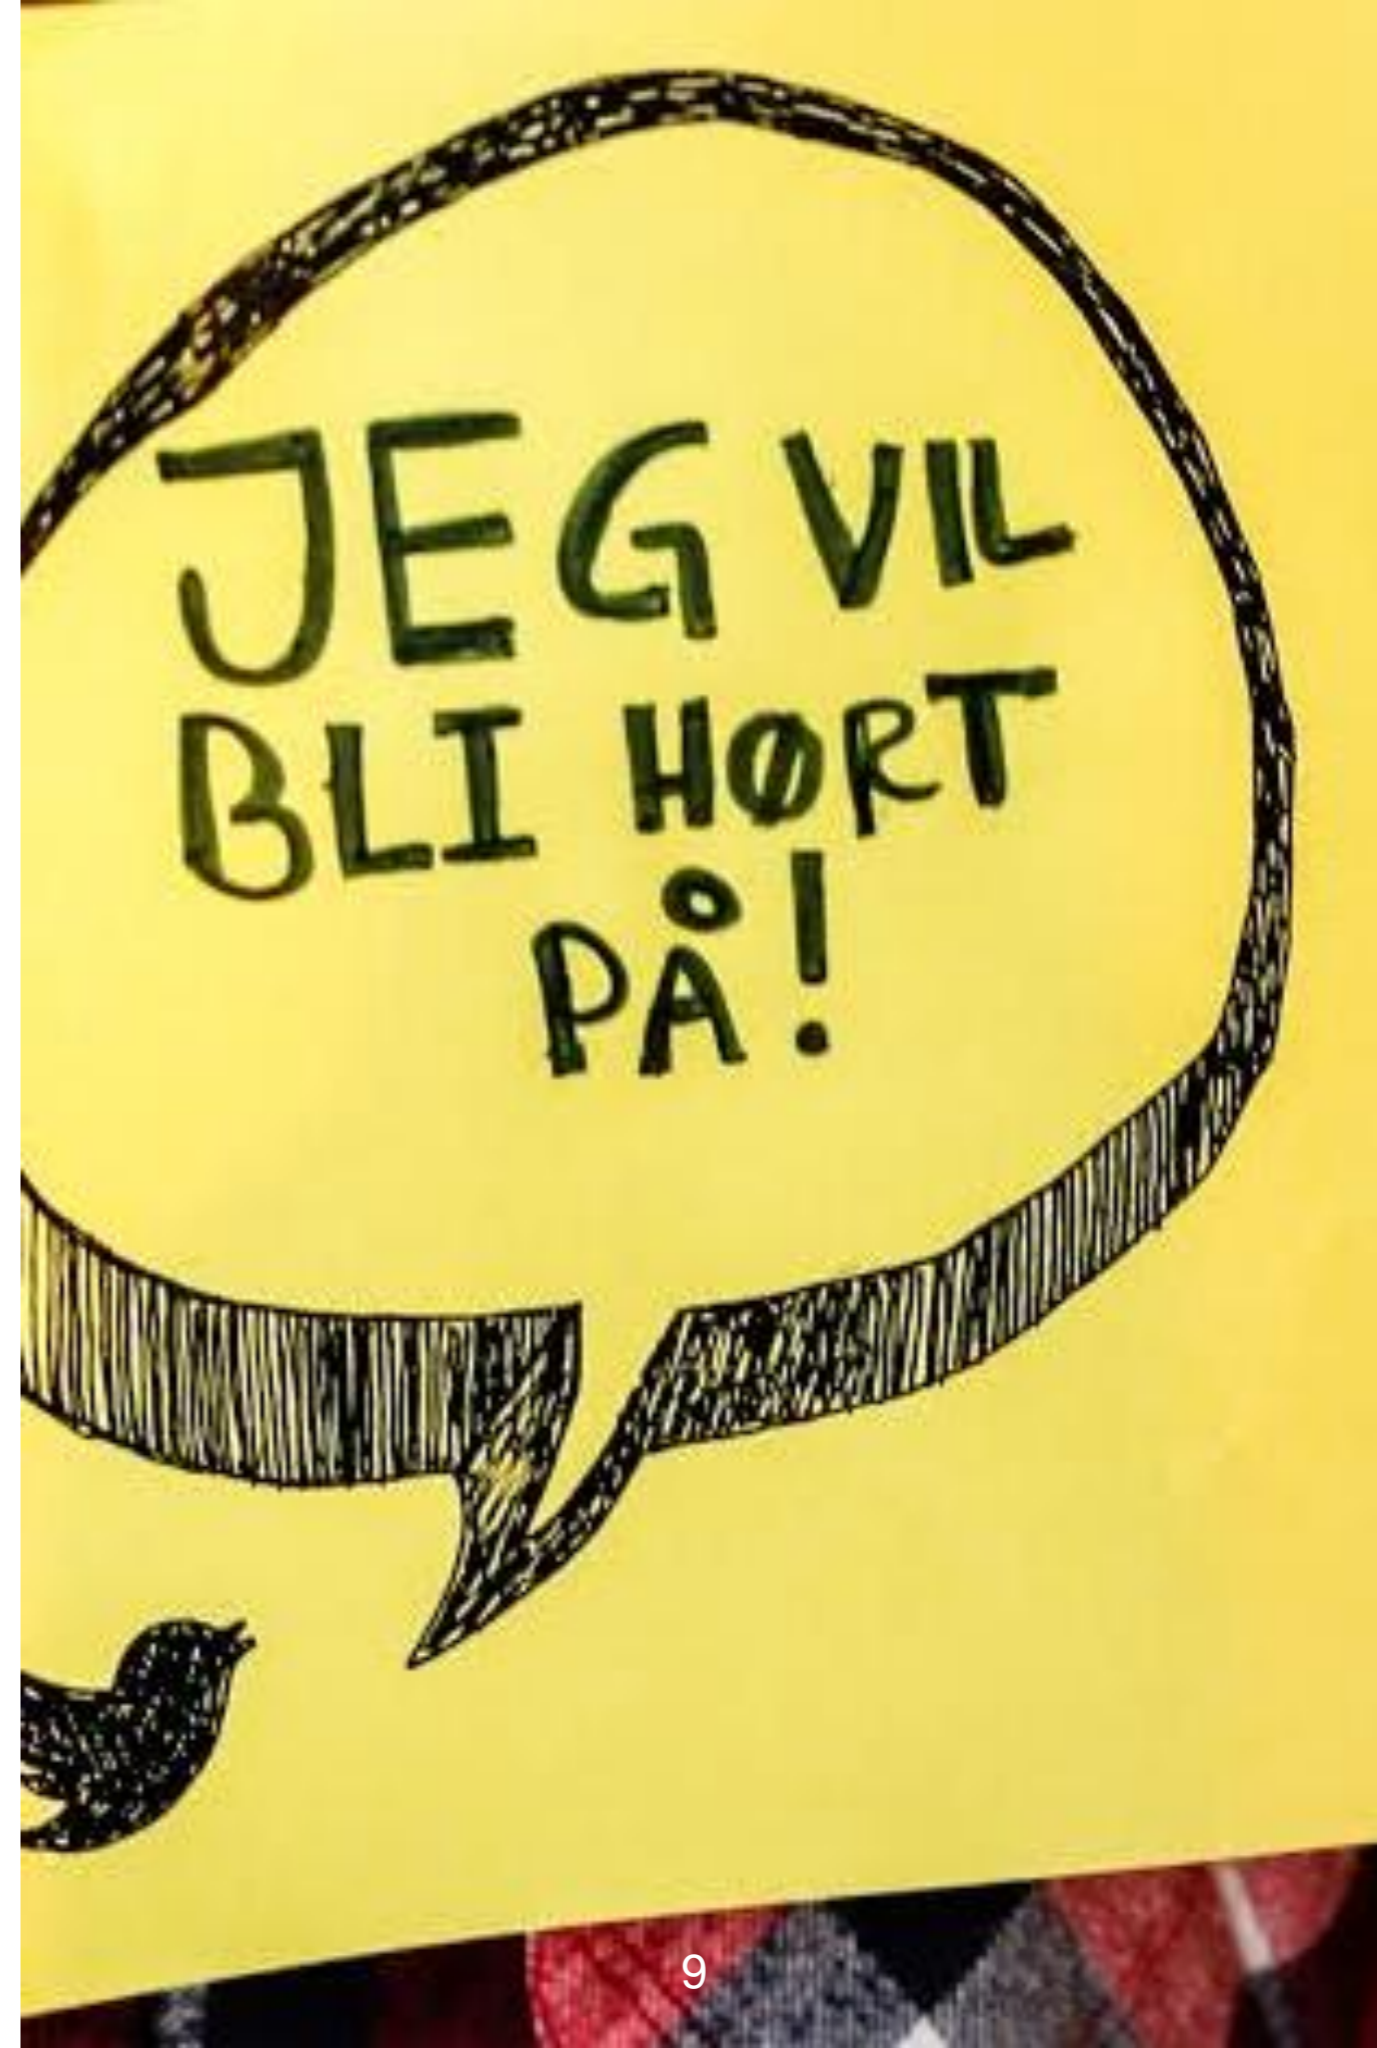 JEG VIL
BLI HØRT
PÅ!
9